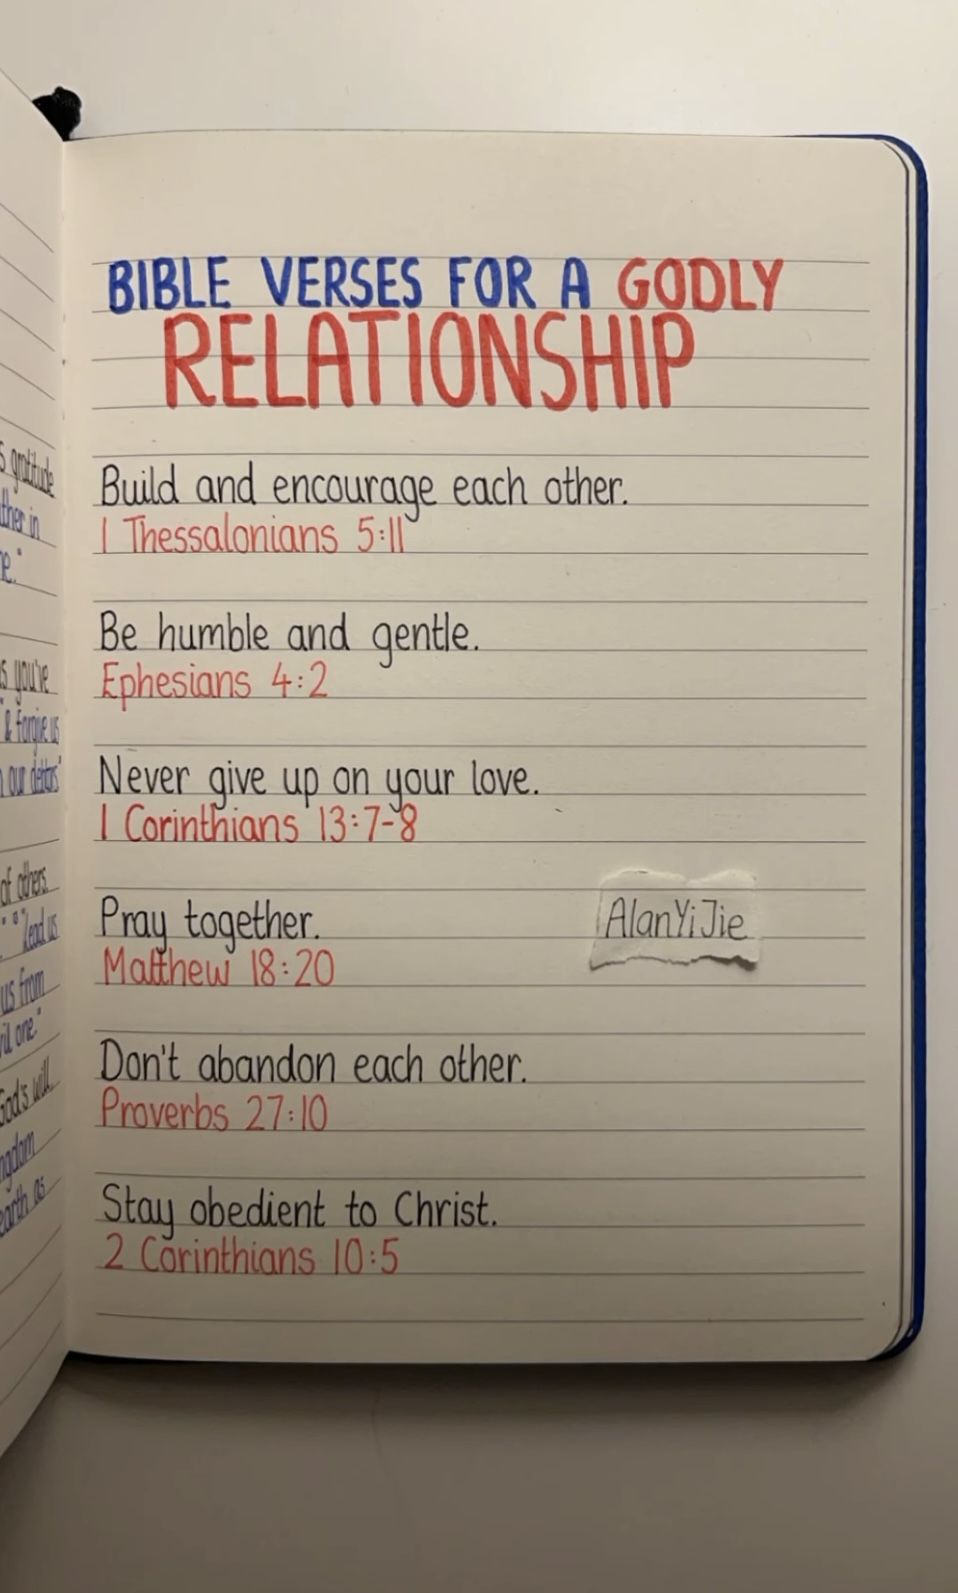 BIBLE VERSES FOR A GODLY
RELATIONSHIP
Build and encourage each other.
1 Thessalonians 5:11
Be humble and gentle.
Ephesians 4:2
Never give up on your love.
1 Corinthians 13:7-8
Pray together.
Matthew 18:20
AlanYiJie
Don't abandon each other.
Proverbs 27:10
Stay obedient to Christ.
2 Corinthians 10:5
gratitude
in
you've
& forgive us
our debtors"
of others.
"Lead us
us from
one."
God's will
earth as